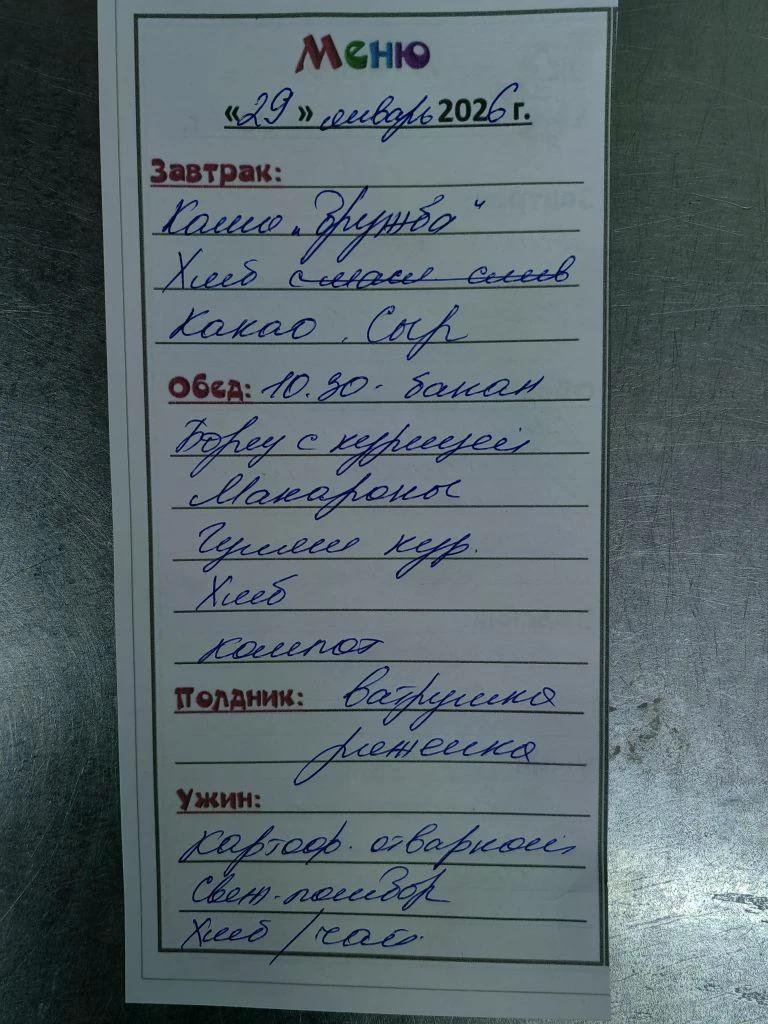 Меню
«29» январь 2026 г.
Завтрак:
Каша „Дружба"
Хлеб с масл слив
Какао, Сыр
Обед: 10.30 - банан
Борщ с курицей
Макароны
Гуляш кур.
Хлеб
компот
Полдник: ватрушка
ряженка
Ужин:
картоф. отварной
Свеж. помидор
Хлеб / чай